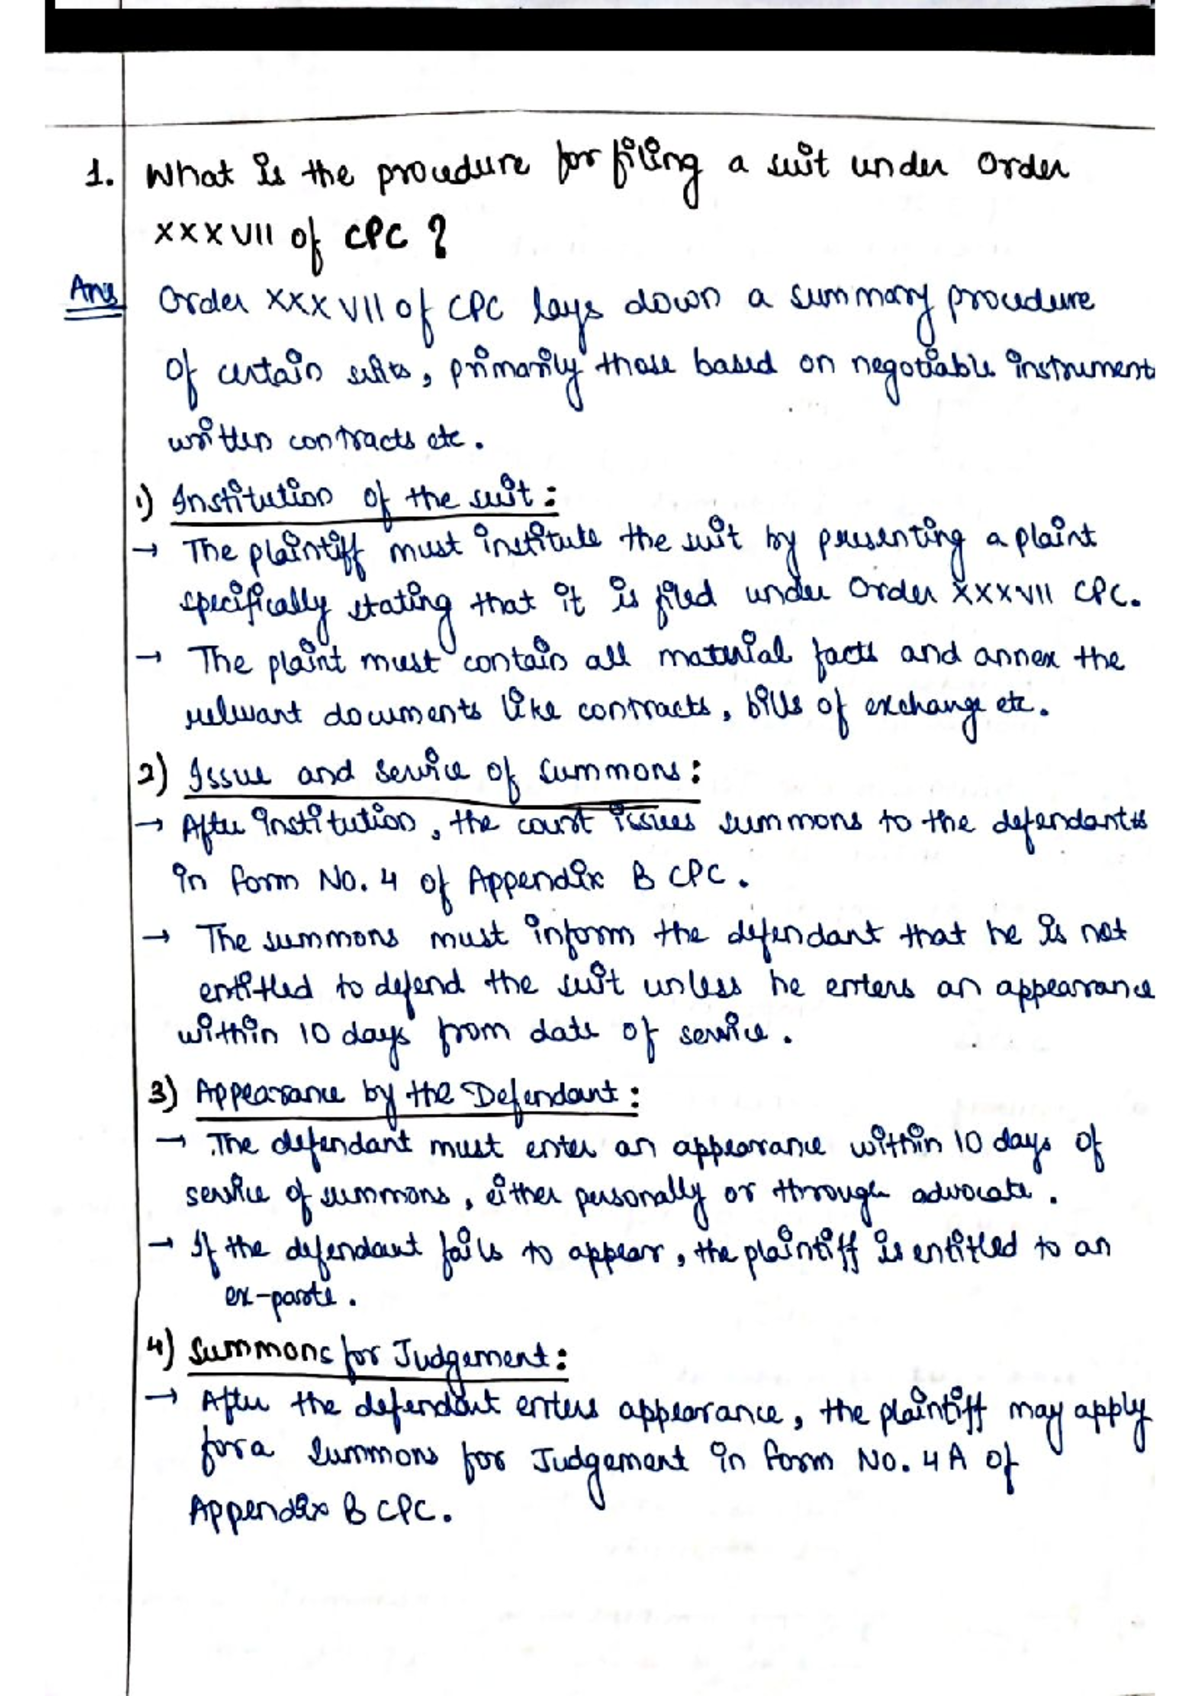 1. What is the procedure for filing a suit under Order
XXXVII of CPC ?
Ans Order XXXVII of CPC lays down a summary procedure
of certain suits, primarily those based on negotiable instrument
written contracts etc.
1) Institution of the suit :
→ The plaintiff must institute the suit by presenting a plaint
specifically stating that it is filed under Order XXXVII CPC.
→ The plaint must contain all material facts and annex the
relevant documents like contracts, bills of exchange etc.
2) Issue and Service of Summons :
→ After institution, the court issues summons to the defendants
in Form No. 4 of Appendix B CPC.
→ The summons must inform the defendant that he is not
entitled to defend the suit unless he enters an appearance
within 10 days from date of service.
3) Appearance by the Defendant :
→ The defendant must enter an appearance within 10 days of
service of summons, either personally or through advocate.
→ If the defendant fails to appear, the plaintiff is entitled to an
ex-parte.
4) Summons for Judgement :
→ After the defendant enters appearance, the plaintiff may apply
for a Summons for Judgement in Form No. 4A of
Appendix B CPC.